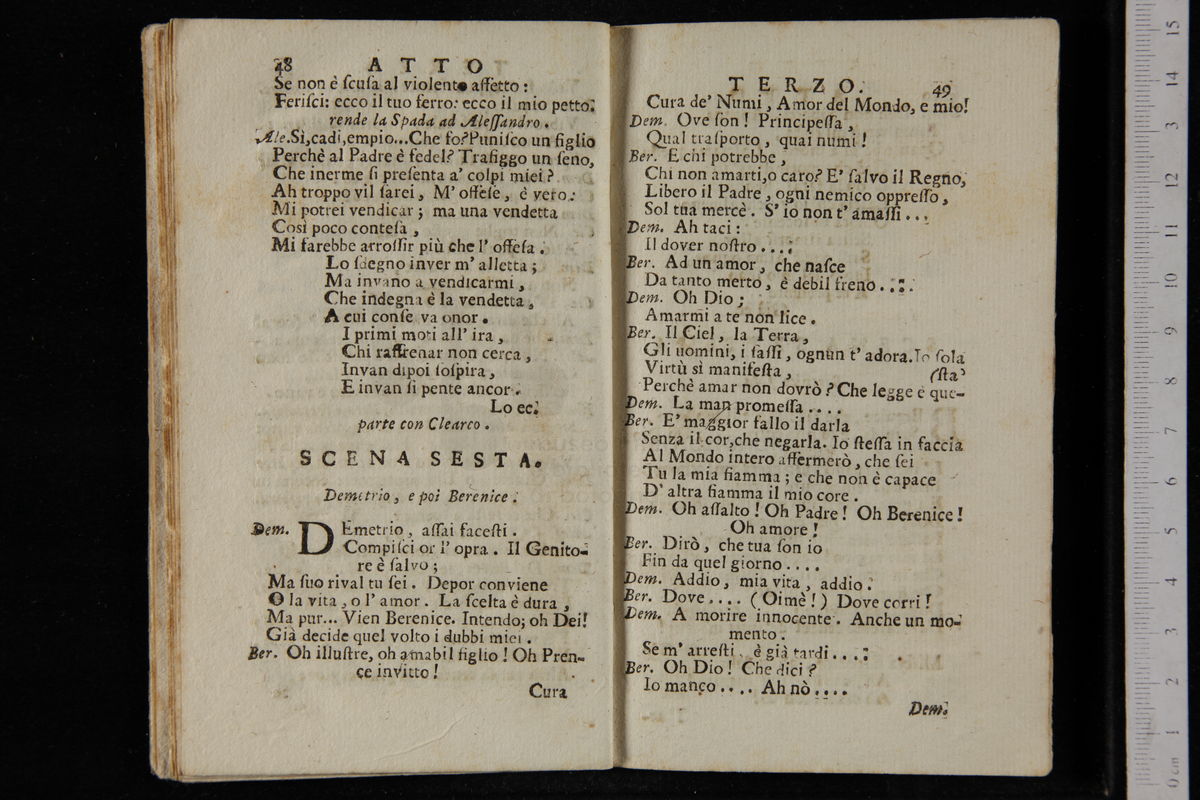 48 ATTO
Se non è ſcuſa al violento affetto :
Feriſci: ecco il tuo ferro: ecco il mio petto.
rende la Spada ad Aleſſandro.
Ale. Sì, cadi, empio... Che fo? Puniſco un figlio
Perchè al Padre è fedel? Trafiggo un ſeno,
Che inerme ſi preſenta a' colpi miei?
Ah troppo vil ſarei, M' offeſe, è vero:
Mi potrei vendicar; ma una vendetta
Così poco conteſa,
Mi farebbe arroſſir più che l' offeſa.
Lo ſdegno inver m' alletta;
Ma invano a vendicarmi,
Che indegna è la vendetta,
A cui conſe va onor.
I primi moti all' ira,
Chi raffrenar non cerca,
Invan dipoi ſoſpira,
E invan ſi pente ancor.
Lo ec.
parte con Clearco.
SCENA SESTA.
Demetrio, e poi Berenice.
Dem. DEmetrio, aſſai faceſti.
Compiſci or l' opra. Il Genito-
re è ſalvo;
Ma ſuo rival tu ſei. Depor conviene
O la vita, o l' amor. La ſcelta è dura,
Ma pur... Vien Berenice. Intendo; oh Dei!
Già decide quel volto i dubbi miei.
Ber. Oh illuſtre, oh amabil figlio! Oh Pren-
ce invitto!
Cura
TERZO. 49
Cura de' Numi, Amor del Mondo, e mio!
Dem. Ove ſon! Principeſſa,
Qual traſporto, quai numi!
Ber. E chi potrebbe,
Chi non amarti, o caro? E' ſalvo il Regno,
Libero il Padre, ogni nemico oppreſſo,
Sol tua mercè. S' io non t' amaſſi...
Dem. Ah taci:
Il dover noſtro....
Ber. Ad un amor, che naſce
Da tanto merto, è debil freno....
Dem. Oh Dio;
Amarmi a te non lice.
Ber. Il Ciel, la Terra,
Gli uomini, i ſaſſi, ognun t' adora. Io ſola
Virtù sì manifeſta, (ſta?
Perchè amar non dovrò? Che legge è que-
Dem. La man promeſſa....
Ber. E' maggior fallo il darla
Senza il cor, che negarla. Io ſteſſa in faccia
Al Mondo intero affermerò, che ſei
Tu la mia fiamma; e che non è capace
D' altra fiamma il mio core.
Dem. Oh aſſalto! Oh Padre! Oh Berenice!
Oh amore!
Ber. Dirò, che tua ſon io
Fin da quel giorno....
Dem. Addio, mia vita, addio.
Ber. Dove.... (Oimè!) Dove corri!
Dem. A morire innocente. Anche un mo-
mento.
Se m' arreſti, è già tardi....
Ber. Oh Dio! Che dici?
Io manco.... Ah nò....
Dem.
15
14
13
12
11
10
9
8
7
6
5
4
3
2
1
0 cm